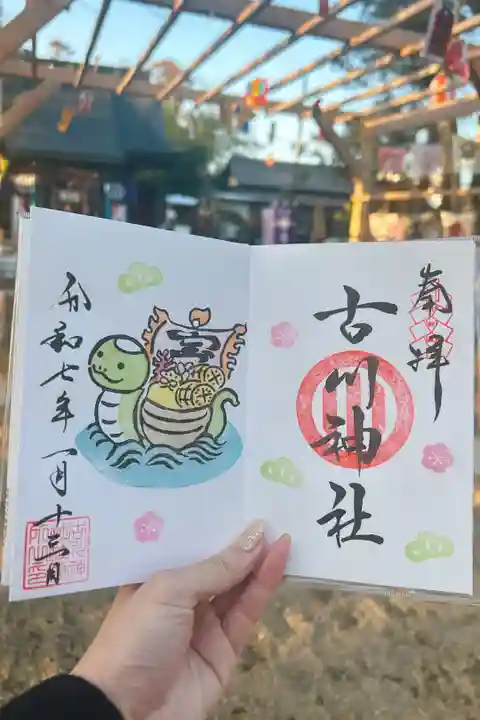 奉拝
古川神社
宝
令和七年一月十三日